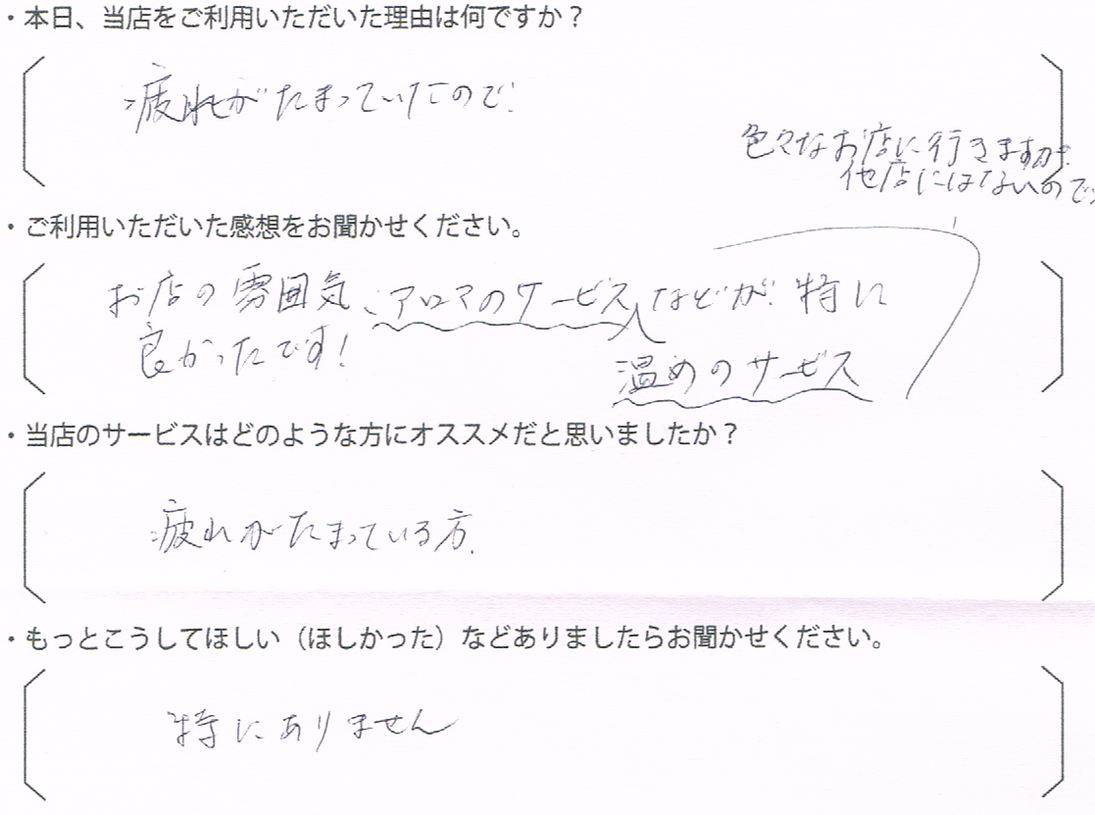 ・本日、当店をご利用いただいた理由は何ですか？
疲れがたまっていたので.
色々なお店に行きますが
他店にはないので
・ご利用いただいた感想をお聞かせください。
お店の雰囲気、アロマのサービスなどが特に
良かったです!
温めのサービス
・当店のサービスはどのような方にオススメだと思いましたか？
疲れがたまっている方.
・もっとこうしてほしい（ほしかった）などありましたらお聞かせください。
特にありません